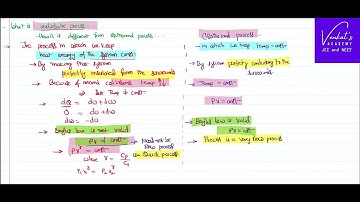 What is adiabatic process
How is it different from isothermal process
The process in which we keep
heat energy of the system const
→ By making that system
perfectly insulated from the surrounding
→ Because of normal collisions temp
→ dQ = du + dw
0 = du + dw
dw = -du
→ Boyle's law is not valid
PV = const
→ PVʳ = const
where r = Cp/Cv
P₁V₁ʳ = P₂V₂ʳ
need not be slow process
Quick process
Isothermal process
→ in which we keep temp = const
→ By system perfectly conducting to the
surrounding
→ Temp = const
PV = const
→ Boyle's law is valid
PV = const
→ Process is a very slow process
Venkat's
ACADEMY
JEE and NEET